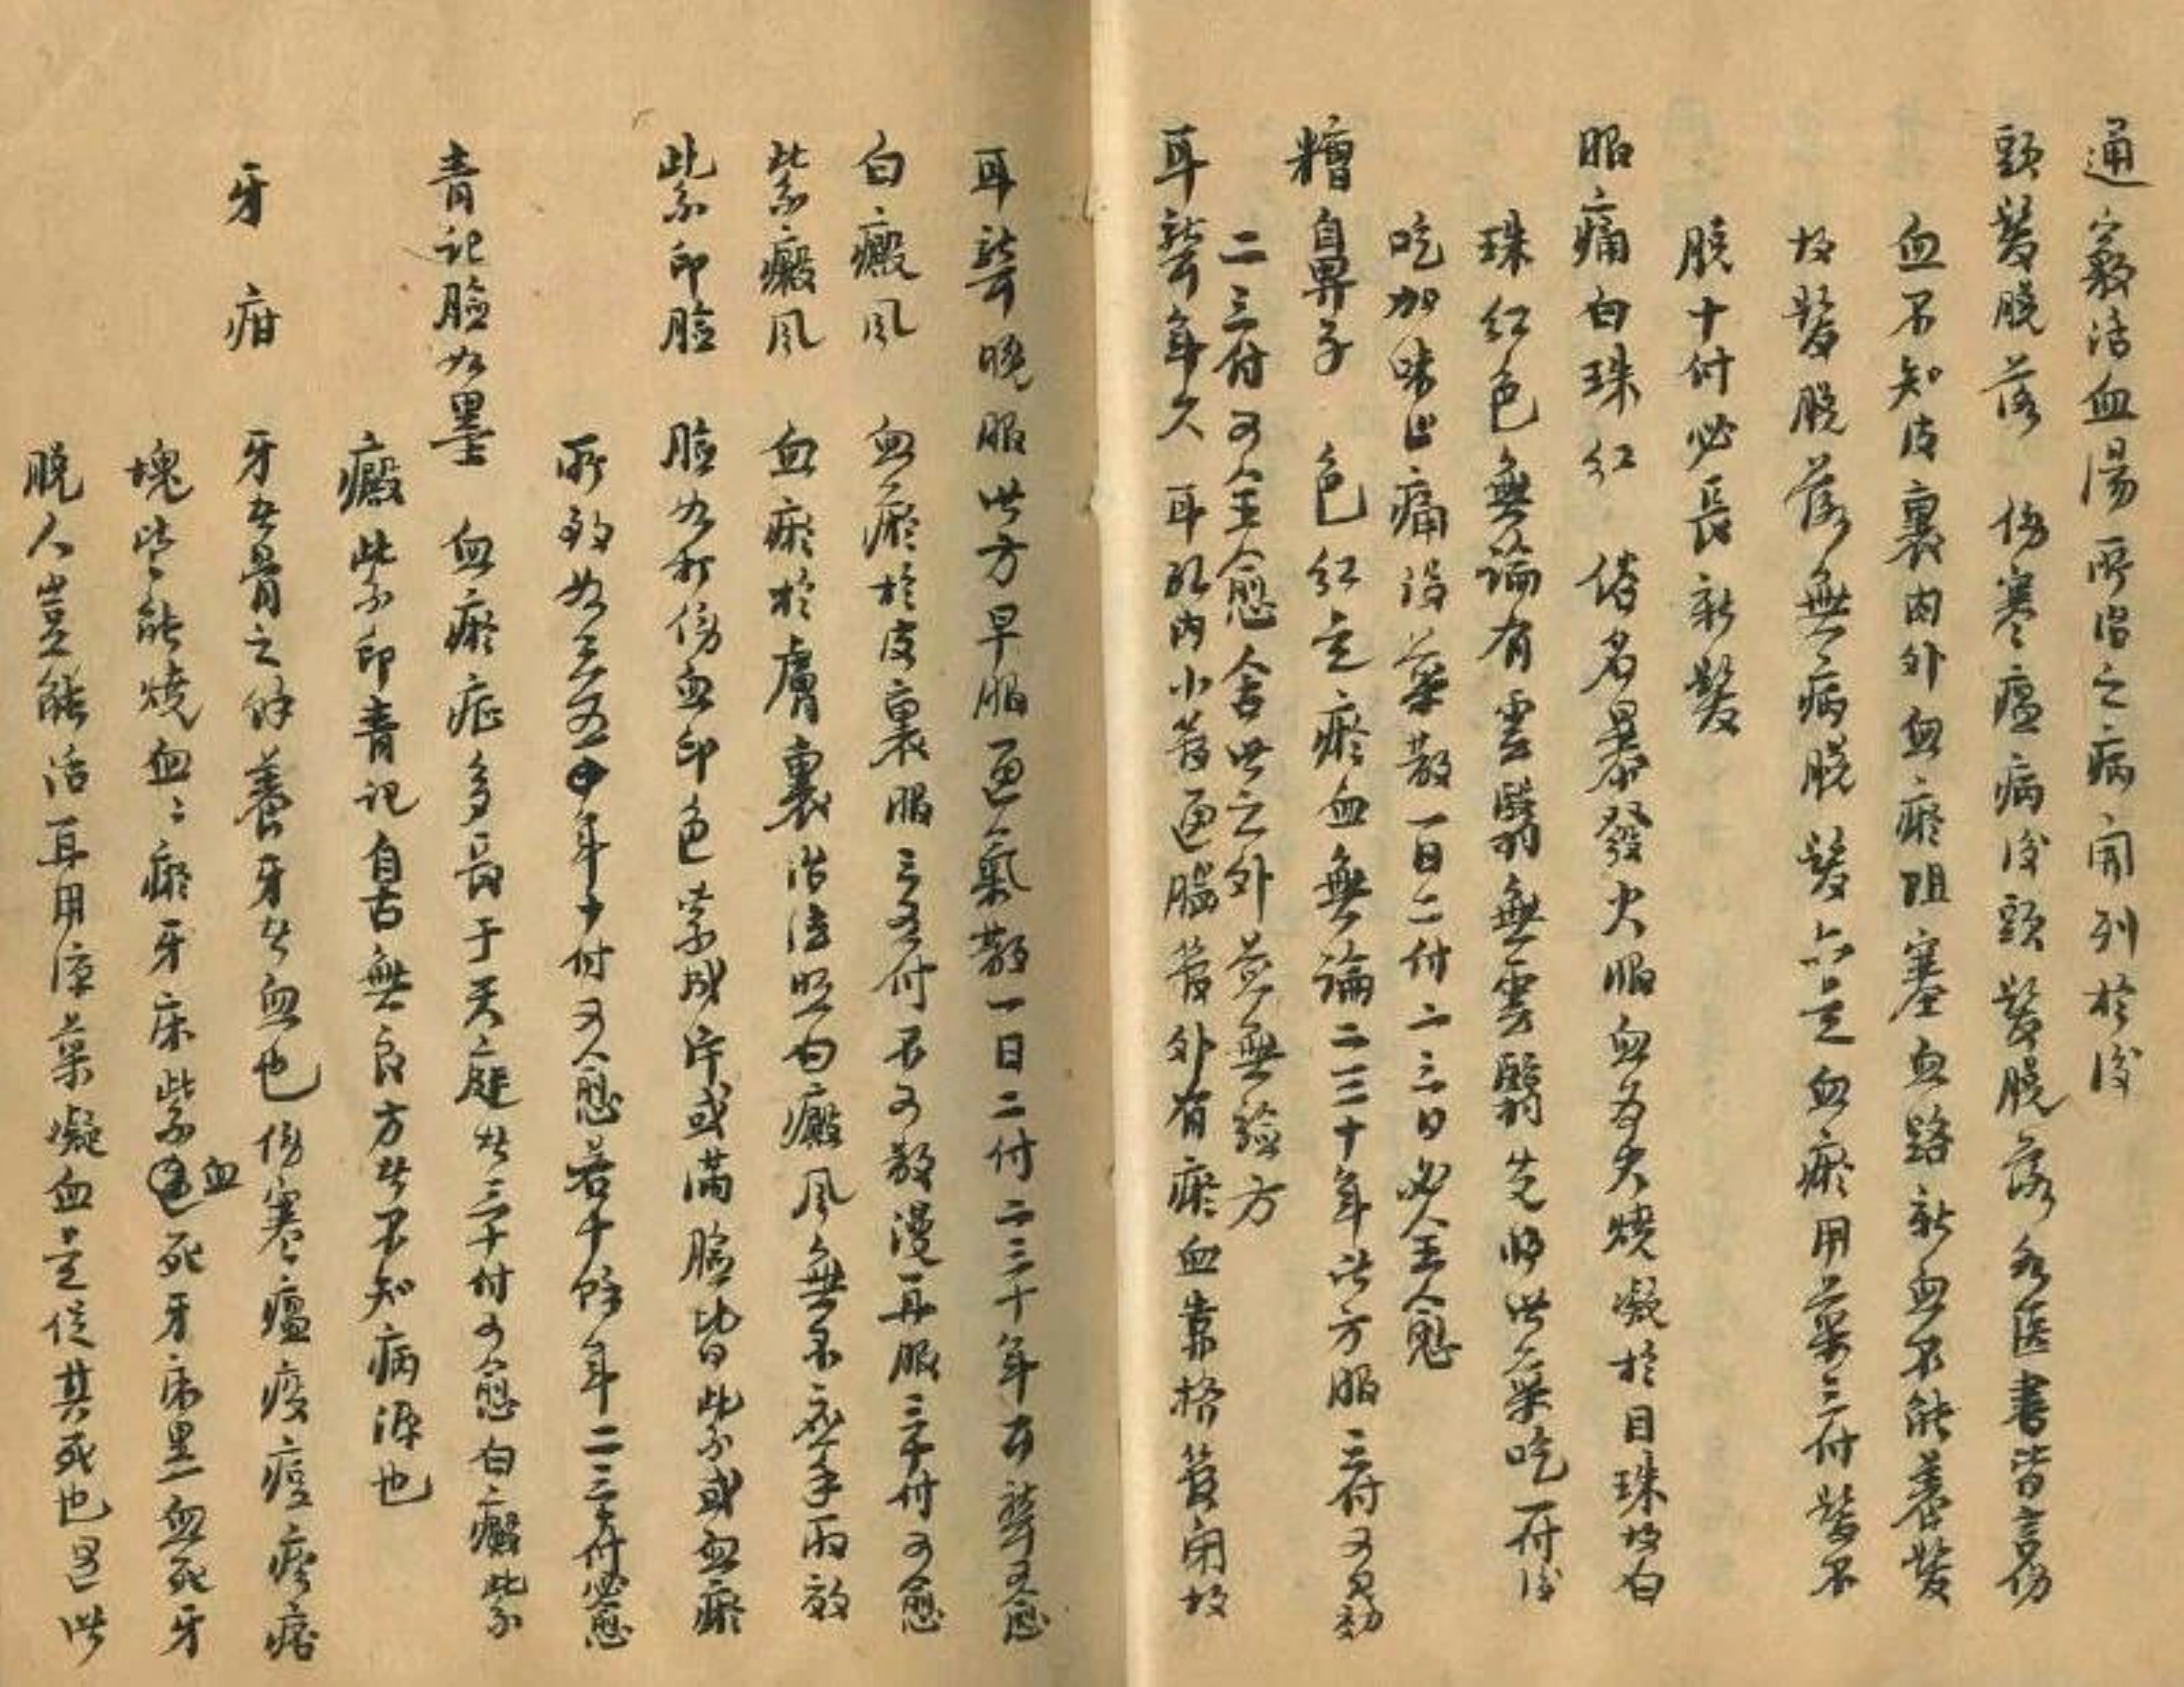 通竅活血湯所治之病開列於後
頭髮脫落 傷寒瘟病後頭髮脫落各医書皆言傷
血不知皮裏肉外血瘀阻塞血路新血不能養髮
故髮脫落無病脫髮亦是血瘀用藥三付髮不
脫十付必長新髮
眼痛白珠紅 俗名暴發火眼血為火燒凝於目珠故白
珠紅色無論有雲翳無雲翳先將此藥吃一付後
吃加味止痛沒藥散一日二付二三日必全愈
糟自鼻子 色紅是瘀血無論二三十年此方服三付可見効
二三付可全愈舍此之外並無驗方
耳聾年久 耳孔內小管通腦管外有瘀血靠擠管閉故
耳聾晚服此方早服通氣散一日二付二三十年耳聾可愈
白癜风 血瘀於皮裏服三五付不可散漫再服三十付可愈
紫癜风 血瘀於膚裏治法照白癜风無不应手而效
紫印脸 脸如打傷血印色紫成片或滿脸皆紫或血瘀
所致如三五年十付可愈若十餘年二三十付必愈
青记脸如墨 血瘀症多長于天庭者三十付可愈白癜紫
癜紫印青记自古無良方者不知病源也
牙疳 牙者骨之餘養牙者血也傷寒瘟疫痘疹痞
塊皆能燒血々瘀牙床紫血死牙床黑血死牙
脫人豈能活耳用凉藥凝血是促其死也遇此